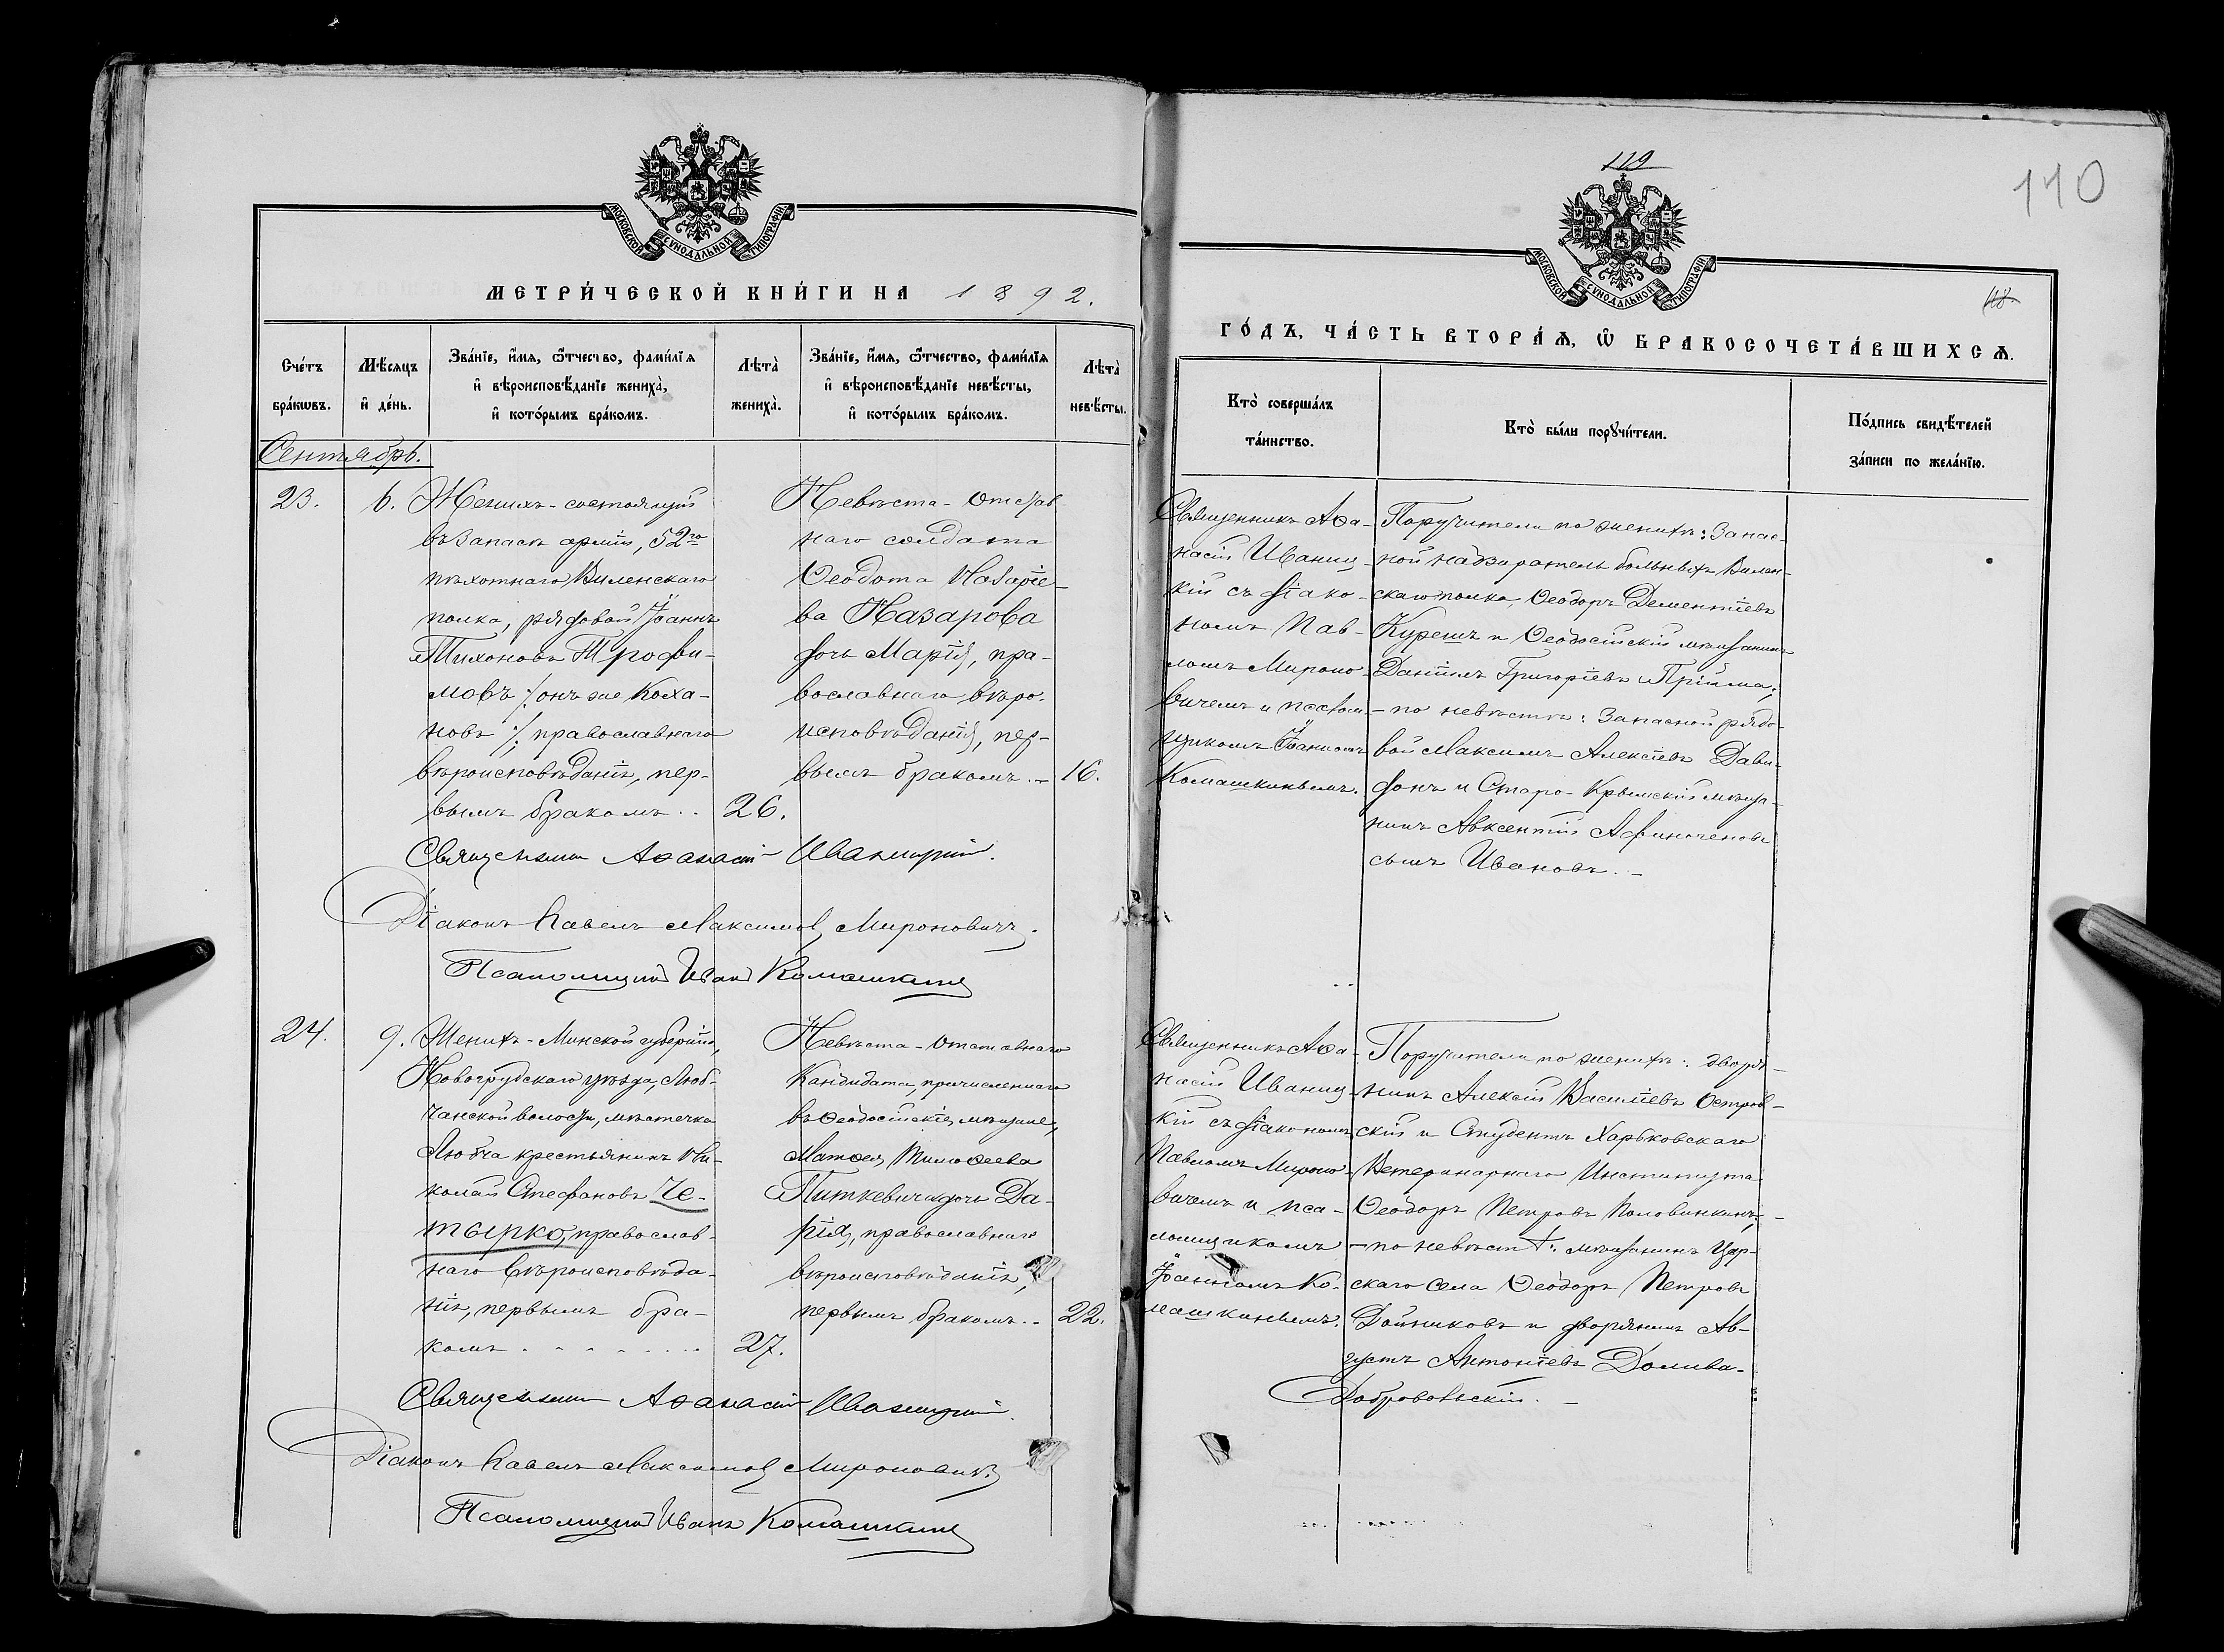 МОСКОВСКОЙ СѴНОДАЛЬНОЙ ТИПОГРАФІИ
МЕТРИ́ЧЕСКОЙ КНИ́ГИ НА 1892.
Сче́тъ бра́кωвъ.
Мѣ́сяцъ и҆ де́нь.
Зва́нїе, и҆́мѧ, ѻ҆́тчество, фами́лїѧ
и҆ вѣроисповѣ́данїе жениха̀,
и҆ кото́рымъ бра́комъ.
Лѣта̀ жениха̀.
Зва́нїе, и҆́мѧ, ѻ҆́тчество, фами́лїѧ
и҆ вѣроисповѣ́данїе невѣ́сты,
и҆ кото́рымъ бра́комъ.
Лѣта̀ невѣ́сты.
Сентябрь.
23.
6.
Женихъ - состоящій
въ запасѣ арміи, 52го
пѣхотнаго Виленскаго
полка, рядовой Іоаннъ
Тихоновъ Трофи-
мовъ /: онъ же Коха-
новъ :/ православнаго
вѣроисповѣданія, пер-
вымъ бракомъ . .
26.
Невѣста - Отстав
наго солдата
Ѳеодота Назаріе-
ва Назарова
дочь Марія, пра-
вославнаго вѣро-
исповѣданія, пер-
вымъ бракомъ. -
16.
Священникъ Аѳанасій Иваницкій.
Діаконъ Павелъ Максимов Мироновичъ.
Псаломщикъ Иванъ Комашкинъ
24.
9.
Женихъ - Минской губерніи,
Новогрудскаго уѣзда, Люб-
чанской волости, мѣстечка
Любча крестьянинъ Ни-
колай Стефановъ Че-
тырко, православ-
наго вѣроисповѣда-
нія, первымъ бра-
комъ . . . . . . . .
27.
Невѣста - Отставнаго
Кандидата, причисленнаго
въ Ѳеодосійскіе мѣщане,
Матѳея Тимоѳеева
Питкевича дочь Да-
рія, православнаго
вѣроисповѣданія,
первымъ бракомъ. -
22.
Священникъ Аѳанасій Иваницкій.
Діаконъ Павелъ Максимов Мироновичъ
Псаломщикъ Иванъ Комашкинъ
119
110
118.
МОСКОВСКОЙ СѴНОДАЛЬНОЙ ТИПОГРАФІИ
ГО́ДЪ, ЧА́СТЬ ВТОРА́Ѧ, Ѡ҆ БРАКОСОЧЕТА́ВШИХСѦ.
Кто̀ соверша́лъ
та́инство.
Кто̀ бы́ли порꙋчи́тели.
По́дпись свидѣ́телей
за́писи по жела́нїю.
Священникъ Аѳа-
насій Иваниц-
кій съ діако-
номъ Пав-
ломъ Мироно-
вичемъ и псалом-
щикомъ Іоанномъ
Комашкинымъ.
Поручители по женихѣ: Запас-
ной надзиратель больныхъ Вилен-
скаго полка, Ѳеодоръ Дементіевъ
Курешъ и Ѳеодосійскій мѣщанинъ
Даніилъ Григоріевъ Прійма;
- по невѣстѣ: Запасной рядо-
вой Максимъ Алексіевъ Дави-
донъ и Старо-Крымскій мѣща-
нинъ Авксентій Афиногеновъ
сынъ Ивановъ. -
Священникъ Аѳа-
насій Иваниц-
кій съ діакономъ
Павломъ Мироно-
вичемъ и пса-
ломщикомъ
Іоанномъ Ко-
машкинымъ.
Поручители по женихѣ: дворя-
нинъ Алексій Василіевъ Остров-
скій и Студентъ Харьковскаго
Ветеринарнаго Института
Ѳеодоръ Петровъ Половинкинъ; -
- по невѣстѣ: мѣщанинъ Цар-
скаго села Ѳеодоръ Петровъ
Дойниковъ и дворянинъ Ав-
густъ Антоніевъ Долива-
Добровольскій. -